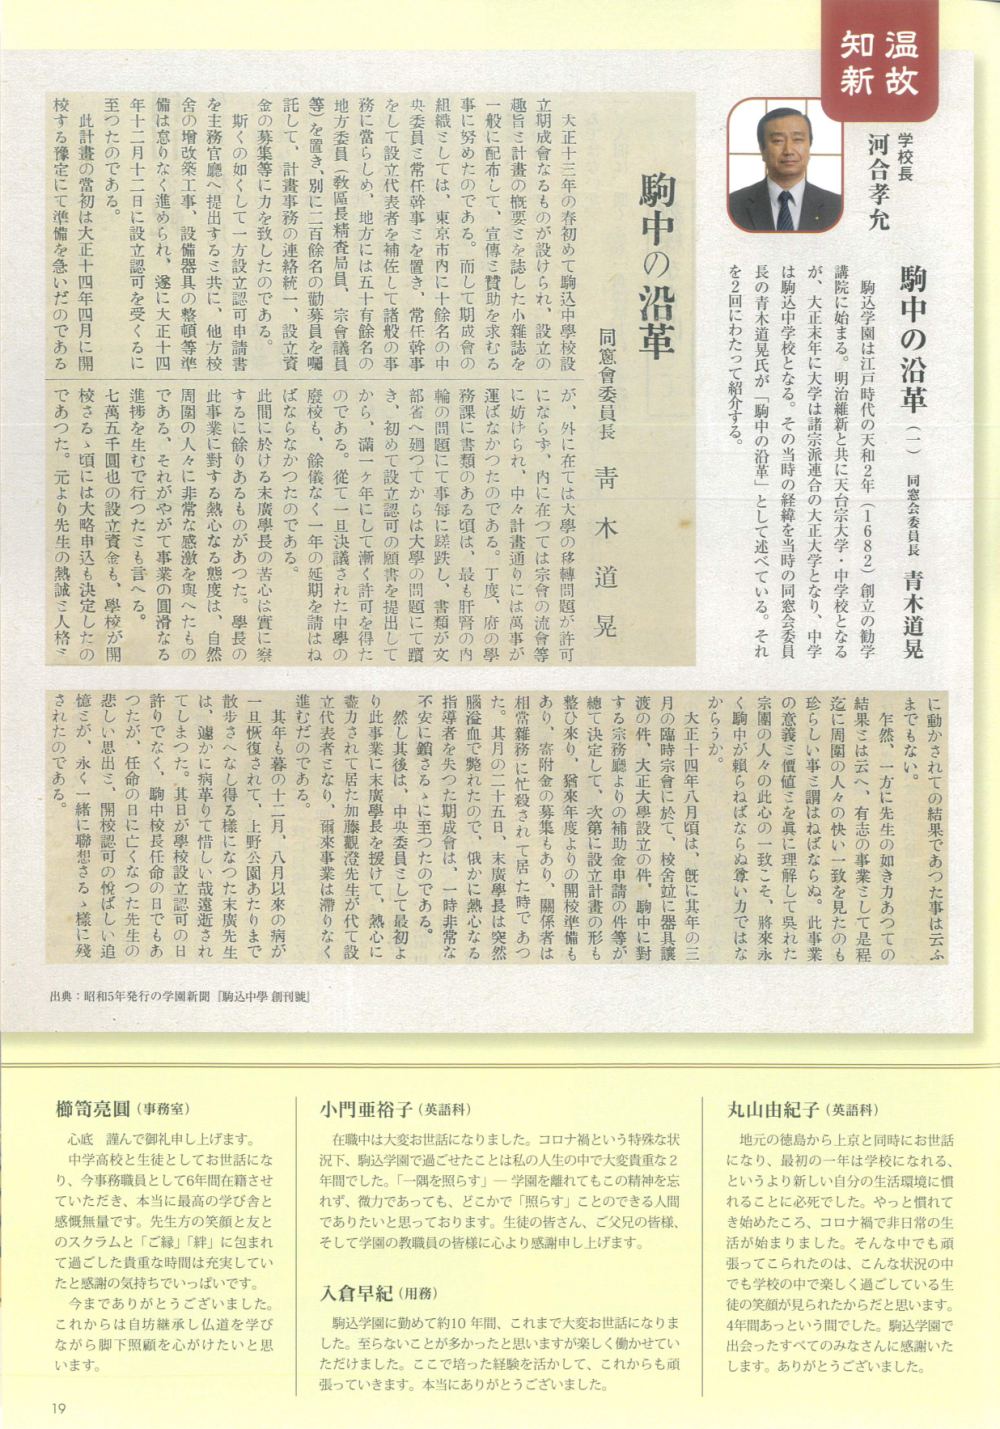 温故
知新
学校長
河合孝允
駒中の沿革（一） 同窓会委員長 青木道晃
駒込学園は江戸時代の天和2年（1682）創立の勧学
講院に始まる。明治維新と共に天台宗大学・中学校となる
が、大正末年に大学は諸宗派連合の大正大学となり、中学
は駒込中学校となる。その当時の経緯を当時の同窓会委員
長の青木道晃氏が「駒中の沿革」として述べている。それ
を2回にわたって紹介する。
駒中の沿革
同窓會委員長 靑木道晃
大正十三年の春初めて駒込中學校設
立期成會なるものが設けられ、設立の
趣旨ミ計畫の槪要ミを誌した小雜誌を
一般に配布して、宣傳ミ贊助を求むる
事に努めたのである。而して期成會の
組織としては、東京市內に十餘名の中
央委員ミ常任幹事ミを置き、常任幹事
をして設立代表者を補佐して諸般の事
務に當らしめ、地方には五十有餘名の
地方委員（敎區長精査局員、宗會議員
等）を置き、別に二百餘名の勸募員を囑
託して、計畫事務の連絡統一、設立資
金の募集等に力を致したのである。
斯くの如くして一方設立認可申請書
を主務官廳へ提出するミ共に、他方校
舍の增改築工事、設備器具の整頓等準
備は怠りなく進められ、遂に大正十四
年十二月十二日に設立認可を受くるに
至つたのである。
此計畫の當初は大正十四年四月に開
校する豫定にて準備を急いだのである
が、外に在ては大學の移轉問題が許可
にならず、內に在つては宗會の流會等
に妨けられ、中々計畫通りには萬事が
運ばなかつたのである。丁度、府の學
務課に書類のある頃は、最も肝腎の內
輪の問題にて事每に蹉跌し、書類が文
部省へ廻つてからは大學の問題にて躓
き、初めて設立認可の願書を提出して
から、滿一ヶ年にして漸く許可を得た
のである。從て一旦決議された中學の
廢校も、餘儀なく一年の延期を請はね
ばならなかつたのである。
此間に於ける末廣學長の苦心は實に察
するに餘りあるものがあつた。學長の
此事業に對する熱心なる態度は、自然
周圍の人々に非常な感激を與へたもの
である、それがやがて事業の圓滑なる
進捗を生むで行つたとも言へる。
七萬五千圓也の設立資金も、學校が開
校さるゝ頃には大略申込も決定したの
であつた。元より先生の熱誠ミ人格ミ
に動かされての結果であつた事は云ふ
までもない。
乍然、一方に先生の如き力あつての
結果ミは云へ、有志の事業ミして是程
迄に周圍の人々の快い一致を見たのも
珍らしい事ミ謂はねばならぬ。此事業
の意義ミ價値ミを眞に理解して吳れた
宗團の人々の此心の一致こそ、將來永
く駒中が賴らねばならぬ尊い力ではな
からうか。
大正十四年八月頃は、旣に其年の三
月の臨時宗會に於て、校舍竝に器具讓
渡の件、大正大學設立の件、駒中に對
する宗務廳よりの補助金申請の件等が
總て決定して、次第に設立計畫の形も
整ひ來り、猶來年度よりの開校準備も
あり、寄附金の募集もあり、關係者は
相常雜務に忙殺されて居た時であつ
た。其月の二十五日、末廣學長は突然
腦溢血で斃れたので、俄かに熱心なる
指導者を失つた期成會は、一時非常な
不安に鎖さるゝに至つたのである。
然し其後は、中央委員として最初よ
り此事業に末廣學長を援けて、熱心に
盡力されて居た加藤觀澄先生が代て設
立代表者となり、爾來事業は滯りなく
進むだのである。
其年も暮の十二月、八月以來の病が
一旦恢復されて、上野公園あたりまで
散歩さへなし得る樣になつた末廣先生
は、遽かに病革りて惜しい哉遠逝され
てしまつた。其日が學校設立認可の日
許りでなく、駒中校長任命の日でもあ
つたが、任命の日に亡くなつた先生の
悲しい思出ミ、開校認可の悅ばしい追
憶ミが、永く一緖に聯想さるゝ樣に殘
されたのである。
出典：昭和5年発行の学園新聞『駒込中學 創刊號』
櫛笥亮圓（事務室）
心底　謹んで御礼申し上げます。
中学高校と生徒としてお世話にな
り、今事務職員として6年間在籍させ
ていただき、本当に最高の学び舎と
感慨無量です。先生方の笑顔と友と
のスクラムと「ご縁」「絆」に包まれ
て過ごした貴重な時間は充実してい
たと感謝の気持ちでいっぱいです。
今までありがとうございました。
これからは自坊継承し仏道を学び
ながら脚下照顧を心がけたいと思
います。
小門亜裕子（英語科）
在職中は大変お世話になりました。コロナ禍という特殊な状
況下、駒込学園で過ごせたことは私の人生の中で大変貴重な２
年間でした。「一隅を照らす」― 学園を離れてもこの精神を忘
れず、微力であっても、どこかで「照らす」ことのできる人間
でありたいと思っております。生徒の皆さん、ご父兄の皆様、
そして学園の教職員の皆様に心より感謝申し上げます。
入倉早紀（用務）
駒込学園に勤めて約10 年間、これまで大変お世話になりま
した。至らないことが多かったと思いますが楽しく働かせてい
ただけました。ここで培った経験を活かして、これからも頑
張っていきます。本当にありがとうございました。
丸山由紀子（英語科）
地元の徳島から上京と同時にお世話
になり、最初の一年は学校になれる、
というより新しい自分の生活環境に慣
れることに必死でした。やっと慣れて
き始めたころ、コロナ禍で非日常の生
活が始まりました。そんな中でも頑
張ってこられたのは、こんな状況の中
でも学校の中で楽しく過ごしている生
徒の笑顔が見られたからだと思います。
4年間あっという間でした。駒込学園で
出会ったすべてのみなさんに感謝いた
します。ありがとうございました。
19